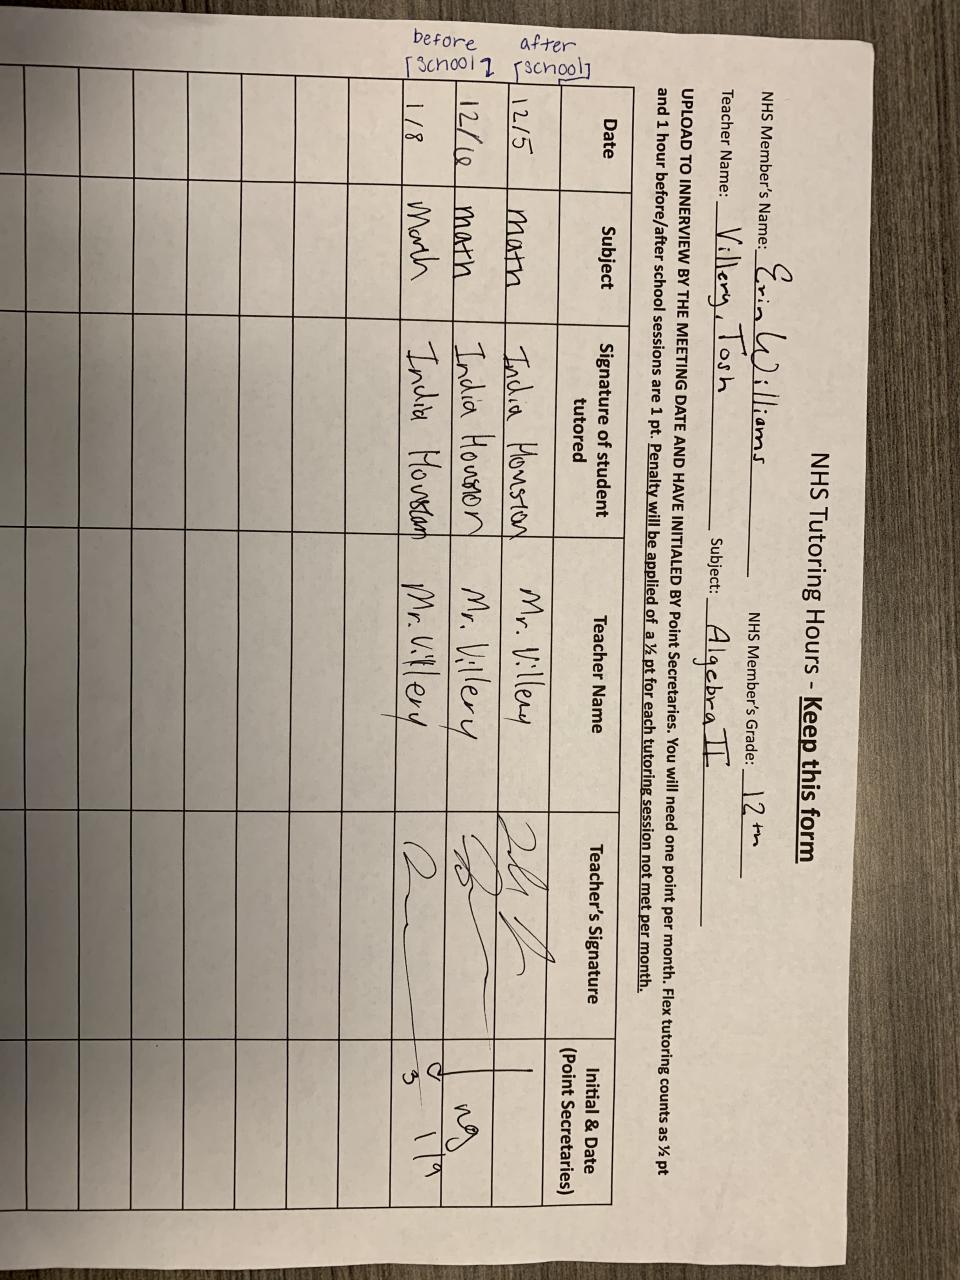 NHS Tutoring Hours - Keep this form
NHS Member's Name: Erin Williams NHS Member's Grade: 12th
Teacher Name: Villery, Tosh Subject: Algebra II
UPLOAD TO INNERVIEW BY THE MEETING DATE AND HAVE INITIALED BY Point Secretaries. You will need one point per month. Flex tutoring counts as ½ pt
and 1 hour before/after school sessions are 1 pt. Penalty will be applied of a ½ pt for each tutoring session not met per month.
Date Subject Signature of student tutored Teacher Name Teacher's Signature Initial & Date (Point Secretaries)
after [school] 12/5 math India Houston Mr. Villery
12/16 math India Houston Mr. Villery ng
before [school] 1/8 Math India Houston Mr. Villery 3 1/9